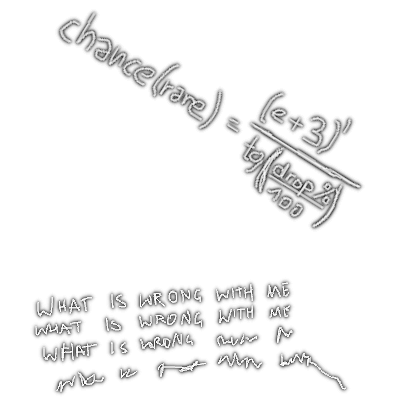 chance(rare) = (e+3)' / tg(drop%/100)
WHAT IS WRONG WITH ME
WHAT IS WRONG WITH ME
WHAT IS WRONG